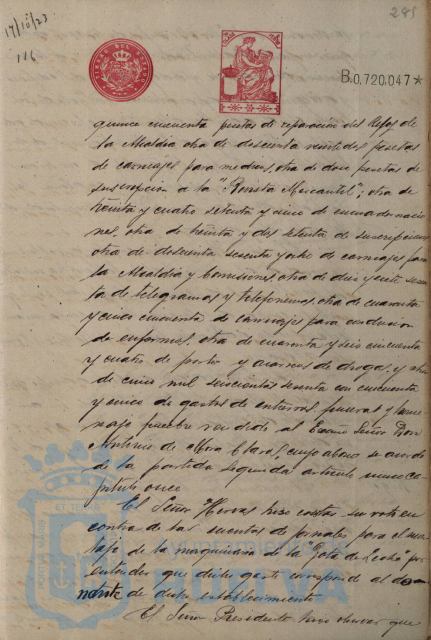 17/10/23
116
285
B.0.720.047*
quince cincuenta pesetas de reparación del reloj de
la Alcaldia otra de doscientas veintidos pesetas
de carruajes para medicos, otra de doce pesetas de
suscripcion a la "Revista Mercantil"; otra de
treinta y cuatro setenta y cinco de encuadernacio
nes, otra de treinta y dos setenta de suscripciones
otra de doscientas sesenta y ocho de carruajes para
la Alcaldia y Comisiones, otra de diez y siete sesen
ta de telegramas y telefonemas, otra de cuarenta
y cinco cincuenta de carruajes para conduccion
de enfermos, otra de cuarenta y seis cincuenta
y cuatro de portes y acarreos de drogas, y otra
de cinco mil seiscientas sesenta con cincuenta
y cinco de gastos de entierros, funeral y home
naje funebre rendido al Excmo Señor Don
Antonio de Mora Claros, cuyo abono se acordó
de la partida segunda articulo unico Ca-
pitulo once
El Señor Hervas hizo constar su voto en
contra de las cuentas de jornales para el mon
taje de la maquinaria de la "Gota de Leche" por
entender que dicho gasto corresponde al do
nante de dicho establecimiento.
El Señor Presidente hizo observar que
HUELVA